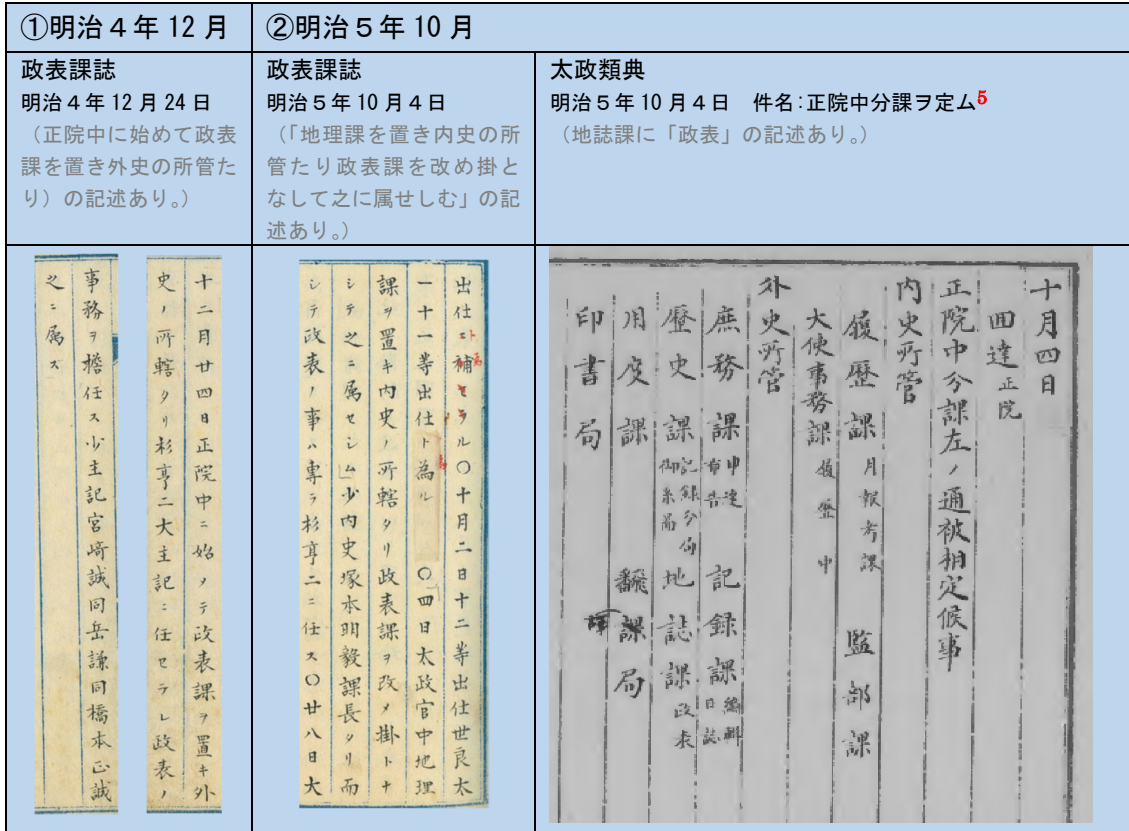 ①明治４年 12 月
②明治５年 10 月
政表課誌
明治４年 12 月 24 日
（正院中に始めて政表
課を置き外史の所管た
り）の記述あり。）
政表課誌
明治５年 10 月４日
（「地理課を置き内史の所
管たり政表課を改め掛と
なして之に属せしむ」の記
述あり。）
太政類典
明治５年 10 月４日　件名:正院中分課ヲ定ム5
（地誌課に「政表」の記述あり。）
十二月廿四日正院中ニ始メテ政表課ヲ置キ外
史ノ所轄タリ杉亨二大主記ニ任セラレ政表ノ
事務ヲ擔任ス少主記宮崎誠同岳謙同橋本正誠
之ニ属ス
出仕ニ補セラル〇十月二日十二等出仕世良太
一十一等出仕ト為ル〇四日太政官中地理
課ヲ置キ内史ノ所轄タリ政表課ヲ改メ掛トナ
シテ之ニ属セシム少内史塚本明毅課長タリ而
シテ政表ノ事ハ專ラ杉亨二ニ任ス〇廿八日大
十月四日
回達 正院
正院中分課左ノ通被相定候事
内史所管
履歴課 月報考課　監部課
大使事務課 履歴中
外史所管
庶務課 申達 布告　記録課 編輯 日誌
歴史課 記録分局 御系局　地誌課 政表
用度課　飜課局
印書局